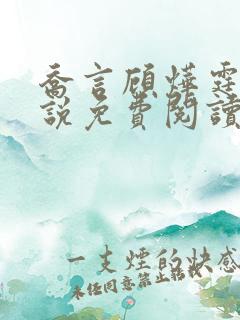 喬言顧燁霆
說免費閱讀
一支煙的快感
未经同意禁止转载